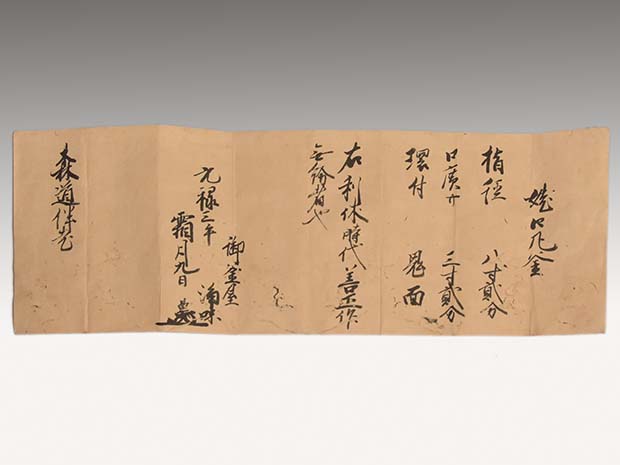 姥口 釜
指徑 八寸貳分
口廣サ 三寸貳分
環付 鬼面
右利休時代善正作
無紛者也
御釜屋 浄味
元禄三年
霜月九日
森道伴老